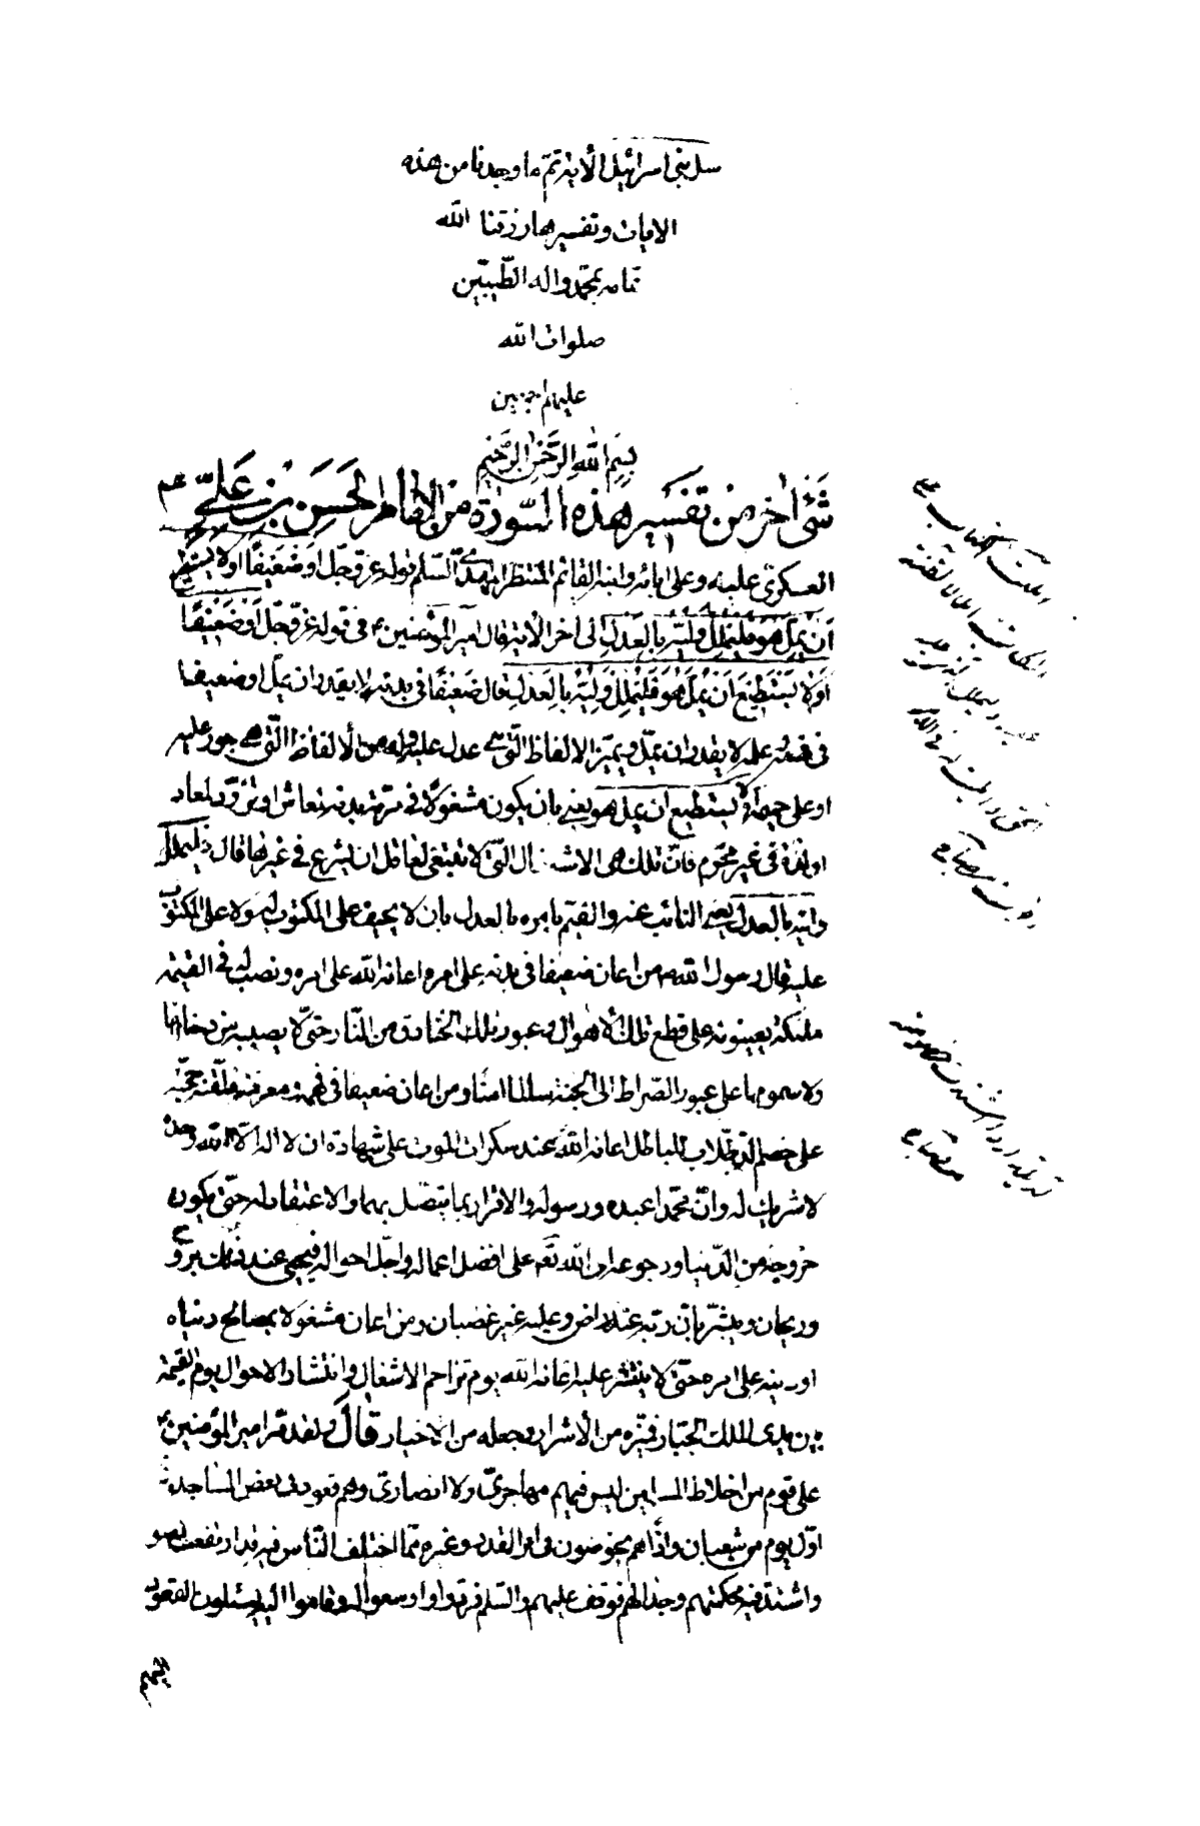 سل بنی اسرائیل الأیة تمّ ما وجدنا من هذه
الایات وتفسیرها رزقنا الله
تمامه بمحمّد واله الطّیبین
صلوات الله
علیهم اجمعین
بِسْمِ اللهِ الرَّحْمٰنِ الرَّحِيْمِ
شَئٌ اٰخر مِنْ تفسیر هٰذه السّورة مِنَ الاِمَامِ الحَسَنِ بْنِ عَلِیّ عم
العسکری علیه وعلی ابائه وابنه القائم المنتظر المهدی السّلم قوله عزّ وجلّ أوْ ضَعِیفًا اَوْلا یستطیع
أَنْ یُمِلَّ هُوَ فَلْیُمْلِلْ وَلِیُّهُ بِالعَدْلِ الی اخر الایة قال امیر المؤمنین ع فی قوله عزّ وجلّ أَوْ ضَعِیْفًا
أَوْلا یَسْتَطِیعُ اَنْ یُمِلَّ هُوَ فَلْیُمْلِلْ وَلِیُّهُ بِالْعَدْلِ قال ضَعِیْفًا فی بدنه لا یقدر ان یملّ او ضعیفا
فی فهمه وعلمه لا یقدر ان یملّ ویمیّز الالفاظ الّتی هی عدل علیه وله من الألفاظ الّتی هی جور علیه
او علی حمیمه أولا یستطیع ان یملّ هو یعنی بان یکون مشغولًا فی مرمّة بدنه لمعاش او تزوّد لمعاد
او لذّة فی غیر محرّم فانّ تلک هی الاشغال الّتی لا ینبغی لعاقل ان یشرع فی غیرها قال فلیملل
ولیّه بالعدل یعنی النائب عنه والقیّم بامره بالعدل بان لا یحیف علی المکتوب له ولا علی المکتوب
علیه قال رسول الله ص من اعان ضعیفا فی بدنه علی امره اعانه الله علی امره ونصب له فی القیمة
ملئکة یعینونه علی قطع تلک الأهوال وعبور تلک الخنادق من النّار حتّی لا یصیبه من دخانها
ولا سمومها علی عبور الصّراط الی الجنّة سالما امنا ومن اعان ضعیفا فی فهمه ومعرفته فلقّنه حجّته
علی خصم الدّین طلاب الباطل اعانه الله عند سکرات الموت علی شهادة ان لا اله الّا الله وحده
لا شریک له وانّ محمّدا عبده ورسوله والاقرار بما یتّصل بهما والاعتقاد له حتّی یکون
خروجه من الدّنیا ورجوعه الی الله تع علی افضل اعماله واجلّ احواله فیجیئ عند ذلک بروح
وریحان ویبشّر بانّ ربّه عنه راض وعلیه غیر غضبان ومن اعان مشغولا بمصالح دنیاه
او دینه علی امره حتّی لا ینتشر علیه اعانه الله یوم تزاحم الاشغال وانتشار الاحوال یوم القیمة
بین یدی الملک الجبّار فمیّزه من الأشرار وجعله من الاخیار قالَ ولقد مرّ امیر المؤمنین ع
علی قوم من اخلاط المسلمین لیس فیهم مهاجریّ ولا انصاریّ وهم قعود فی بعض المساجد فی
اوّل یوم من شعبان واذا هم یخوضون فی امر القدر وغیره ممّا اختلف النّاس فیه قد ارتفعت اصو
واشتدّ فیه محکمتهم وجدالهم فوقف علیهم وسلّم فردّوا واوسعوا له وقاموا الیه یسئلونه القعود
الیهم